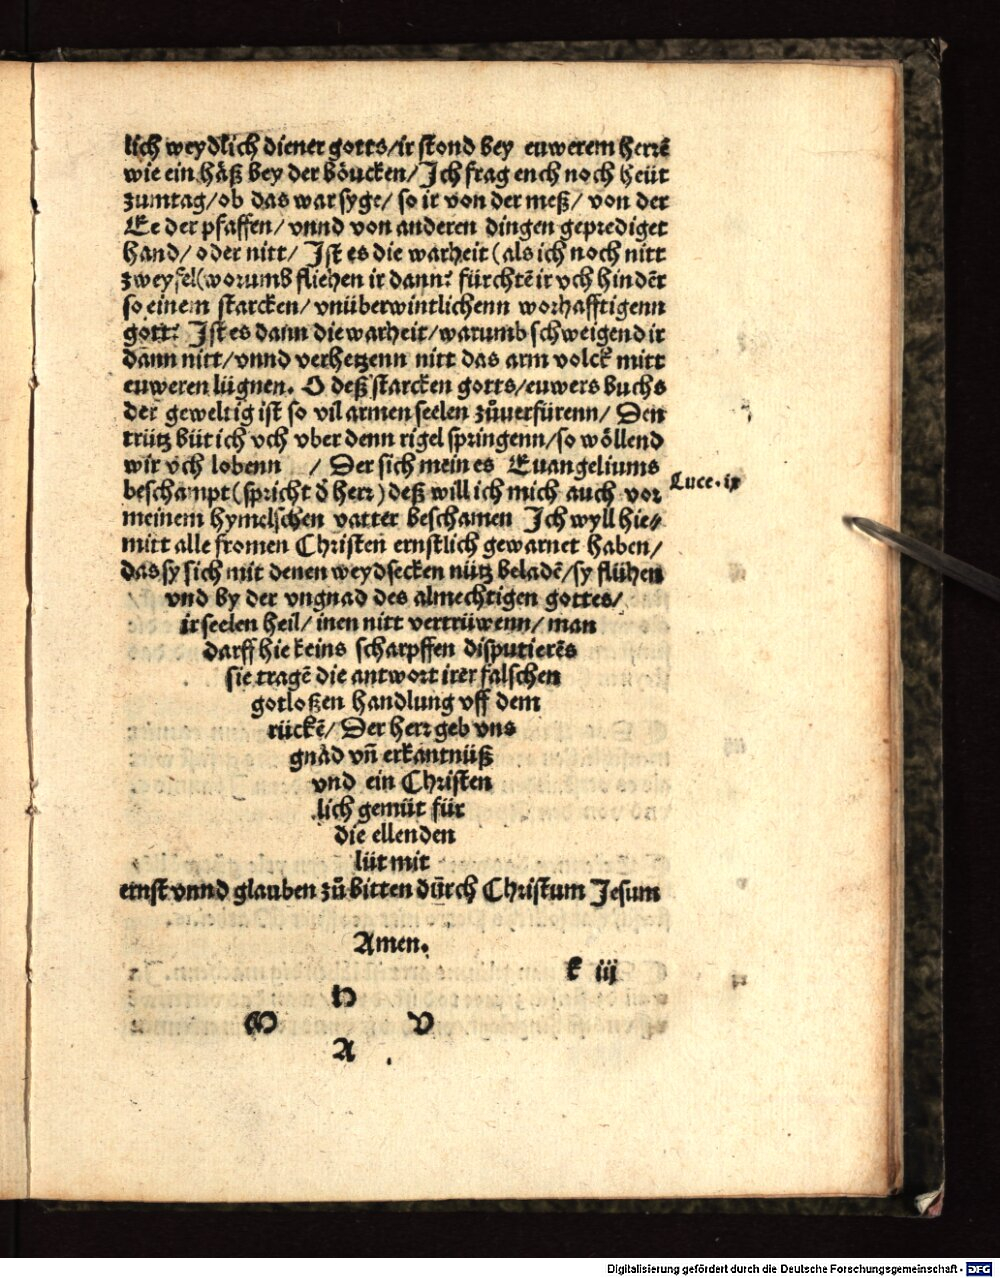 lich weydlich diener gotts/ir stond bey euwerem herrē
wie ein häß bey der böucken/Jch frag ench noch heüt
zumtag/ob das war syge/so ir von der meß/von der
Ee der pfaffen/vnnd von anderen dingen geprediget
hand/oder nitt/Jst es die warheit(als ich noch nitt
zweyfel(worumb fliehen ir dann? fürchtē ir vch hindēr
so einem starcken/vnüberwintlichenn worhafftigenn
gott? Jst es dann die warheit/warumb schweigend ir
dann nitt/vnnd verhetzenn nitt das arm volck mitt
euweren lügnen. O deß starcken gotts/euwers buchs
der geweltig ist so vil armen seelen zůuerfürenn/Den
trütz büt ich vch vber denn rigel springenn/so wöllend
wir vch lobenn /Der sich meines Euangeliums
beschampt(spricht d̄ herr)deß will ich mich auch vor
Luce.ix
meinem hymelschen vatter beschamen Jch wyll hie⸗
mitt alle fromen Christen ernstlich gewarnet haben/
das sy sich mit denen weydsecken nütz beladē/sy flühen
vnd by der vngnad des almechtigen gottes/
ir seelen heil/inen nitt vertrüwenn/man
darff hie keins scharpffen disputierēs
sie tragē die antwort irer falschen
gotloßen handlung vff dem
rückē/Der herr geb vns
gnàd vn̄ erkantnüß
vnd ein Christen
lich gemüt für
die ellenden
lüt mit
ernst vnnd glauben zů bitten dürch Christum Jesum
Amen.
k iij
H
M V
A .
Digitalisierung gefördert durch die Deutsche Forschungsgemeinschaft - DFG